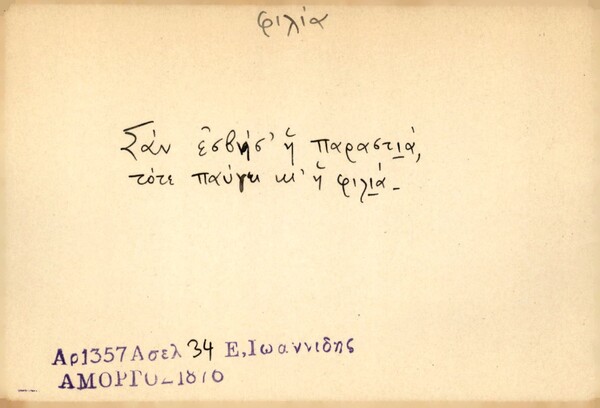 φιλία
Σὰν ἐσβήσ' ἡ παραστιά,
τότε παύγει κι' ἡ φιλιά.
Αρ1357Ασελ 34 Ε,Ιωαννιδης
ΑΜΟΡΓΟΣ1876